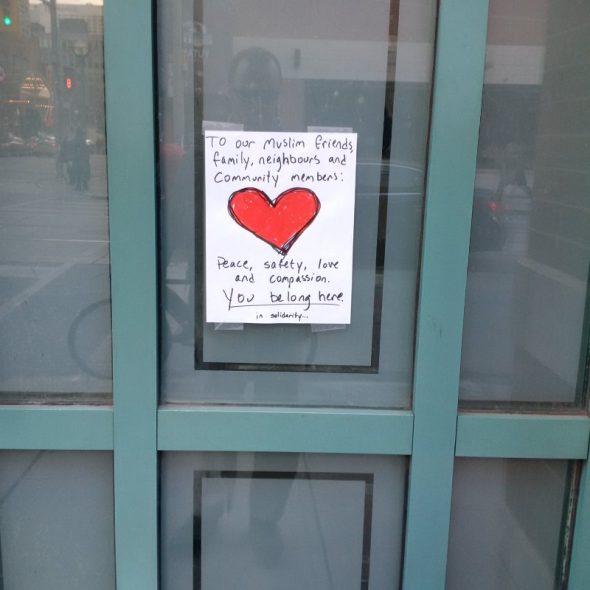 TO our Muslim friends,
family, neighbours and
Community members:
Peace, safety, love
and compassion.
You belong here.
in solidarity...